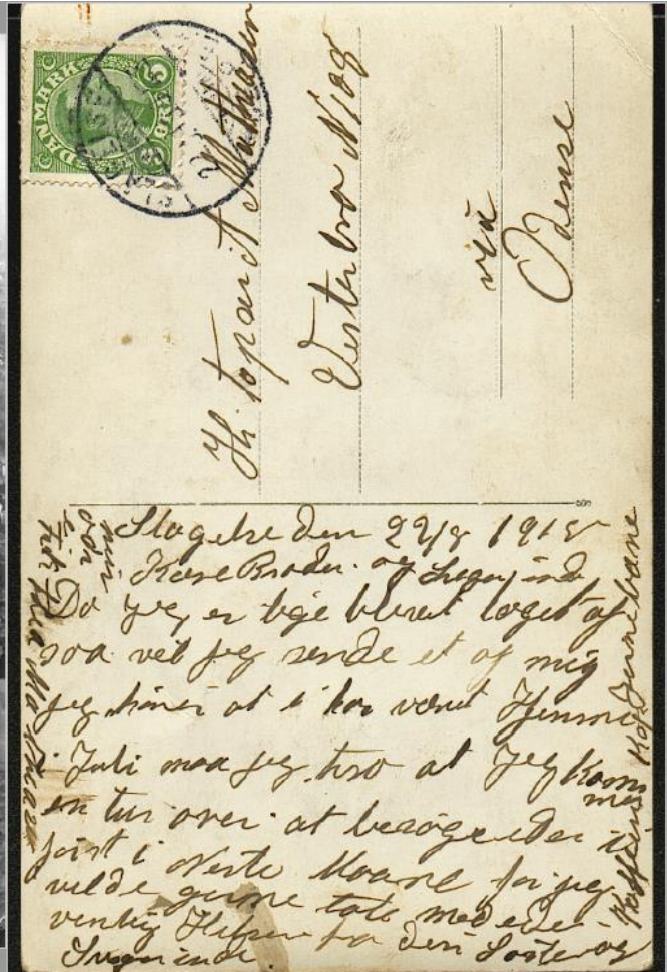 DANMARK
5 ØRE
Hr. Topærit Mathiasen
Vesterbro N 108
via
Odense
Slagelse den 22/8 1918
Kære Broder og Svigerinde
Da jeg er lige blevet taget af
saa vil jeg sende et af mig
jeg hører at i har været Hjemme
i Juli maa jeg tro at jeg kommer
en tur over at besøge eder
først i Neste Maane for jeg
vilde gerne tale med eder
venlig Hilsen fra din Søster og
Svigerinde.
min